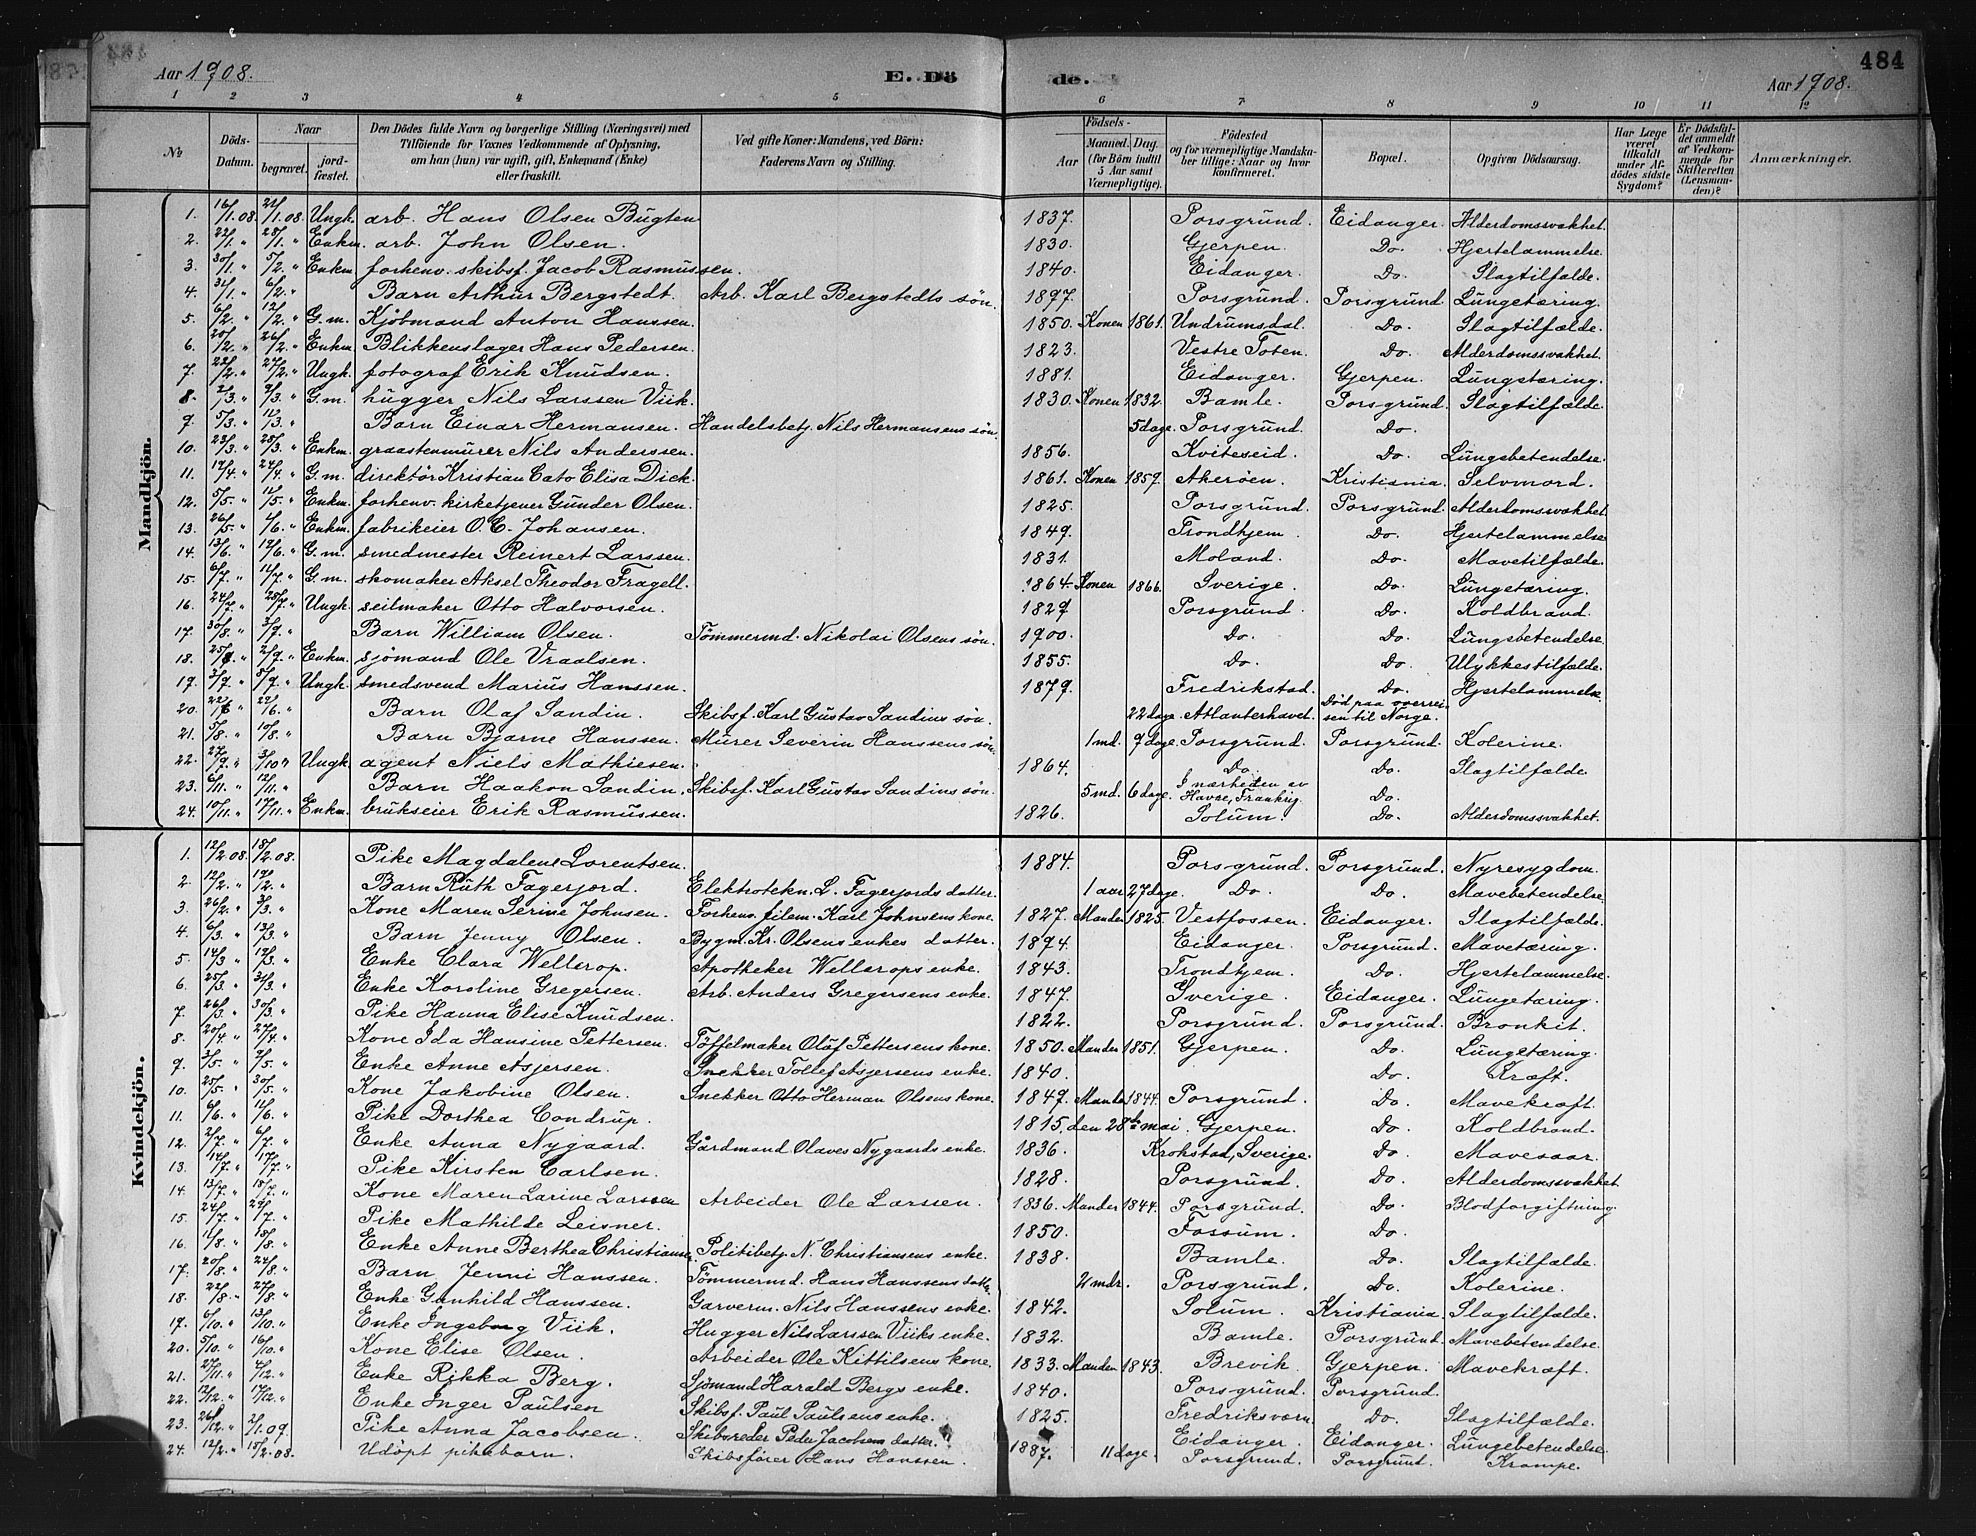 484
Aar 1908. E. Dö de. Aar 1908.
1 2 3 4 5 6 7 8 9 10 11 12
№ Döds-Datum. Naar begravet. jord-fæstet. Den Dödes fulde Navn og borgerlige Stilling (Næringsvei) med Tilföiende for Voxnes Vedkommende af Oplysning, om han (hun) var ugift, gift, Enkemand (Enke) eller fraskilt. Ved gifte Koner: Mandens, ved Börn: Faderens Navn og Stilling. Födsels- Aar Maaned. Dag. (for Börn indtil 5 Aar samt Værnepligtige). Födested og for værnepligtige Mandska-ber tillige: Naar og hvor konfirmeret. Bopæl. Opgiven Dödsaarsag. Har Læge været tilkaldt under Af-dödes sidste Sygdom? Er Dödsfal-det anmeldt af Vedkom-mende for Skifteretten (Lensman-den)? Anmærkninger.
Mandkjön.
1. 16/1.08. 22/1.08. Ungk. arb. Hans Olsen Bugten 1837. Porsgrund. Eidanger. Alderdomssvakhet.
2. 22/1. " 28/1. " Enkm. arb. John Olsen. 1830. Gjerpen. Do. Hjertelammelse.
3. 30/1. " 5/2. " Enkm. forhenv. skibsf. Jacob Rasmussen. 1840. Eidanger. Do. Slagtilfælde.
4. 31/1. " 6/2. " Barn Arthur Bergstedt. Arb. Karl Bergstedts søn. 1897. Porsgrund. Porsgrund. Lungetæring.
5. 6/2. " 12/2. " G.m. Kjöbmand Anton Hanssen. 1850. Konen 1861. Undrumsdal. Do. Slagtilfælde.
6. 20/2. " 26/2. " Enkm. Blikkenslager Hans Pedersen. 1823. Vestre Toten. Do. Alderdomssvakhet.
7. 22/2. " 27/2. " Ungk. fotograf Erik Knudsen. 1881. Eidanger. Gjerpen. Lungetæring.
8. 2/3. " 9/3. " G.m. hugger Nils Larssen Viik. 1830. Konen 1832. Bamle. Porsgrund. Slagtilfælde.
9. 5/3. " 11/3. " Barn Einar Hermansen. Handelsbetj. Nils Hermansens søn. 5 dage. Porsgrund. Do.
10. 23/3. " 25/3. " Enkm. graastenmurer Nils Anderssen. 1856. Kviteseid. Do. Lungebetendelse.
11. 17/4. " 24/4. " G.m. direktör Kristian Cato Elisa Dick. 1861. Konen 1859. Akeröen. Kristiania. Selvmord.
12. 5/5. " 11/5. " Enkm. forhenv. kirketjener Gunder Olsen. 1825. Porsgrund. Porsgrund. Alderdomssvakhet.
13. 26/5. " 1/6. " Enkm. fabrikeier O. C. Johansen. 1849. Trondhjem. Do. Hjertelammelse
14. 13/6. " 17/6. " G.m. smedmester Reinert Larssen. 1831. Moland. Do. Mavetilfælde.
15. 6/7. " 11/7. " G.m. skomaker Aksel Theodor Fragell. 1864. Konen 1866. Sverige. Do. Lungetæring.
16. 24/7. " 25/7. " Ungk. seilmaker Otto Halvorsen. 1829 Porsgrund. Do. Koldbrand.
17. 30/8. " 3/9. " Barn William Olsen. Tømmermd. Nikolai Olsens søn. 1900. Do. Do. Lungebetendelse.
18. 25/8. " 2/9. " Enkm. sjömand Ole Vraalsen. 1855. Do. Do. Ulykkestilfælde.
19. 3/9. " 8/9. " Ungk. smedsvend Marius Hanssen. 1879. Fredrikstad. Do. Hjertelammelse
20. 22/6 " 22/6. " Barn Olaf Sandin. Skibsf. Karl Gustav Sandins søn. 22 dage. Atlanterhavet. Död paa overrei-sen til Norge.
21. 5/8. " 10/8. " Barn Bjarne Hanssen. Murer Severin Hanssens søn. 1 md. 9 dage. Porsgrund. Porsgrund. Kolerine.
22. 27/9. " 3/10. " Ungk. agent Niels Mathiesen. 1864. Do. Do. Slagtilfælde
23. 6/11. " 12/11. " Barn Haakon Sandin. Skibsf. Karl Gustav Sandins søn. 5 md. 6 dage. I nærheden av Havre, Frankrig. Do.
24. 10/11. " 17/11. " Enkm. brukseier Erik Rasmussen. 1826. Solum. Do. Alderdomssvakhet.
Kvindekjön.
1. 12/2.08. 18/2.08. Pike Magdalene Lorentsen. 1884. Porsgrund. Porsgrund. Nyresygdom.
2. 12/2. " 19/2. " Barn Ruth Fagerjord. Elektrotekn. L. Fagerjords datter. 1 aar 27 dage. Do. Do. Mavebetendelse
3. 26/2. " 3/3. " Kone Maren Serine Johnsen. Forhenv. filem. Karl Johnsens kone. 1827. Manden 1825. Vestfossen. Eidanger. Slagtilfælde.
4. 6/3. " 13/3. " Barn Jenny Olsen. Bygm. Kr. Olsens enkes datter. 1894. Eidanger. Porsgrund. Mavetæring.
5. 14/3 " 19/3. " Enke Clara Wellerop. Apotheker Wellerops enke. 1843. Trondhjem. Do. Hjertelammelse.
6. 25/3 " 31/3. " Enke Karoline Gregersen. Arb. Anders Gregersens enke. 1847. Sverige. Eidanger. Lungetæring.
7. 26/3. " 30/3. " Pike Hanna Elise Knudsen. 1822. Porsgrund. Porsgrund. Bronkit.
8. 20/4. " 27/4. " Kone Ida Hansine Pettersen. Töffelmaker Olaf Pettersens kone. 1850. Manden 1851. Gjerpen. Do. Lungetæring.
9. 3/5. " 9/5. " Enke Anne Asjersen. Snekker Tollef Asjersens enke. 1840. Do. Kræft.
10. 25/5. " 30/5. " Kone Jakobine Olsen. Snekker Otto Herman Olsens kone. 1849. Manden 1844. Porsgrund. Do. Mavekræft.
11. 6/6. " 11/6. " Pike Dorthea Condrup. 1815. den 28de mai. Gjerpen. Do. Koldbrand.
12. 2/7. " 6/7. " Enke Anna Nygaard. Gårdmand Olaves Nygaards enke. 1836. Krokstad, Sverige. Do. Mavesaar.
13. 14/7. " 17/7. " Pike Kirsten Carlsen. 1828. Porsgrund. Do. Alderdomssvakhet.
14. 13/7. " 18/7. " Kone Maren Larine Larssen Arbeider Ole Larssen. 1836. Manden 1844. Porsgrund. Do. Blodforgiftning.
15. 21/7. " 24/7. " Pike Mathilde Leisner. 1850. Fossum. Do.
16. 11/8. " 18/8. " Enke Anne Berthea Christianse. Politibetj. N. Christiansens enke. 1838. Bamle. Do. Slagtilfælde.
17. 20/8. " 24/8. " Barn Jenni Hanssen. Tømmermd. Hans Hanssens datter. 2 mdr. Porsgrund. Do. Kolerine.
18. 22/8. " 27/8. " Enke Gunhild Hanssen. Garverm. Nils Hanssens enke. 1842. Solum. Kristiania. Slagtilfælde.
19. 6/10. " 13/10. " Enke Ingeborg Viik. Hugger Nils Larssen Viiks enke. 1832. Bamle. Porsgrund. Mavebetendelse.
20. 5/10. " 16/10. " Kone Elise Olsen. Arbeider Ole Kittilsens kone. 1833. Manden 1843. Brevik. Gjerpen. Mavekræft.
21. 27/11. " 4/12. " Enke Rikka Berg. Sjömand Harald Bergs enke. 1840. Porsgrund. Porsgrund.
22. 12/12. " 17/12. " Enke Inger Paulsen Skibsf. Paul Paulsens enke. 1825. Fredriksværn. Do. Slagtilfælde.
23. 26/12. " 2/1.09. Pike Anna Jacobsen. Skibsreder Peder Jacobsens datter. 1887. Eidanger. Eidanger. Lungebetendelse.
24. 12/2. " 15/2.08. Udöpt pikebarn. Skibsfører Hans Hanssen. 11 dage. Porsgrund. Porsgrund. Krampe.